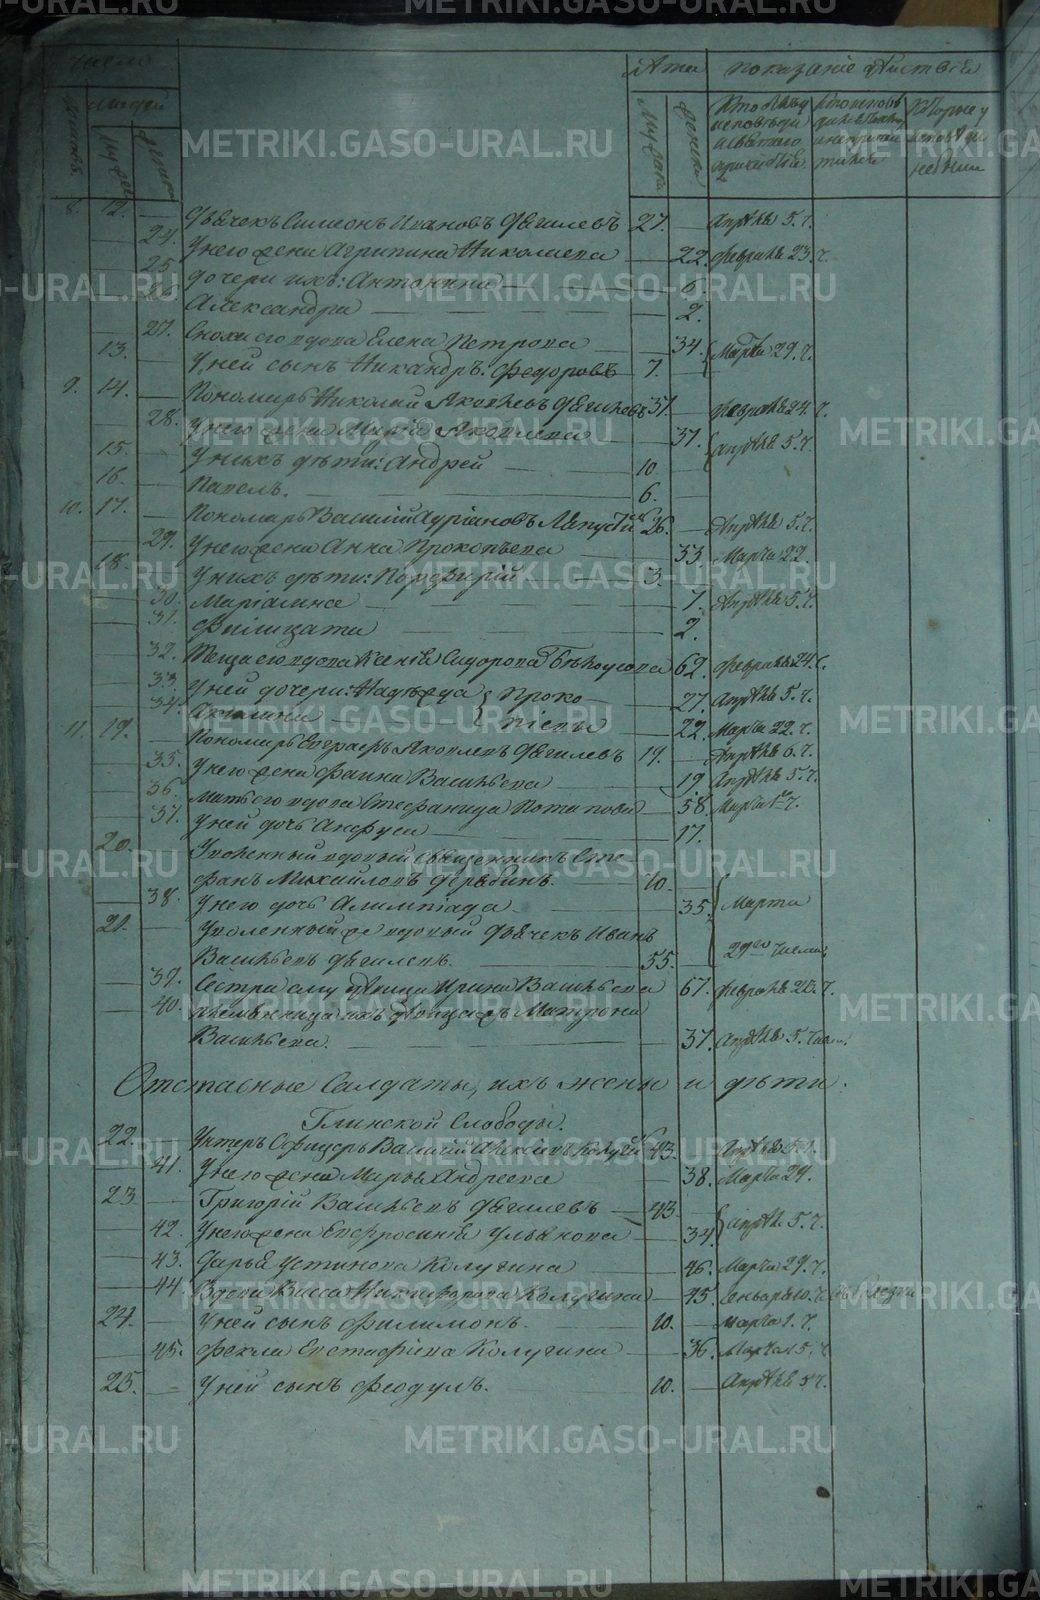 Число
Лѣта показаніе дѣйствія
людей
8. 12. Дьячекъ Симеонъ Ивановъ Дягилевъ 27. Апрѣля 5. ч.
24. У него жена Агрипина Николаева 22. февраля 23. ч.
25 дочери ихъ: Антонина 6.
26 Александра 2.
27. Сноха его вдова Елена Петрова 34. Марта 29. ч.
13. У ней сынъ Никандръ Федоровъ 7.
9. 14. Пономарь Николай Яковлевъ 31 февраля 24. ч.
28. У него жена Марія Яковлева 31. апрѣля 5. ч.
15. У нихъ дѣти: Андрей 10.
16. Павелъ. 6.
10. 17. Пономарь Василій Адріановъ 36. Апрѣля 5. ч.
29. У него жена Анна Прокопьева 33. Марта 22.
18. У нихъ дѣти: Порфирій 3.
30. Маріамна 7. Апрѣля 5. ч.
31. Филицата 2.
32. Теща его вдова Ксенія Сидорова 62. февраля 24. ч.
33. У ней дочери: Надежда Проко 27. Апрѣля 5. ч.
34. Акилина піевы 22. Марта 22. ч.
11. 19. Пономарь Евграфъ Яковлевъ Дягилевъ 19. Апрѣля 6. ч.
35. У него жена Фаина Васильева 19 Апрѣля 5. ч.
36. Мать его вдова Стефанида Потапова 58. Марта 1го ч.
37. У ней дочь Анфуса 17.
20. Уволенный вдовый священникъ Сте-
фанъ Михайловъ 70.
38. У него дочь Алимпіада 35. Марта
21. Уволенный вдовый дьячекъ Иванъ
29го числа
Васильевъ Дягилевъ. 55.
39. Сестра ему дѣвица Ирина Васильева 67. февраля 22. ч.
40. ихъ Матрона
Васильева. 37. Апрѣля 5. числ.
Отставные Салдаты, ихъ жены и дѣти.
Глинской Слободы.
22. Унтеръ Офицеръ Василій 43. Апрѣля 5. ч.
41. У него жена Марья Андреева 38. Марта 29.
23. Григорій Васильевъ Дягилевъ 43. апрѣл. 5. ч.
42. У него жена Евфросинія Ульянова 34.
43. Дарья Устинова Колугина 46. Марта 29. ч.
44. Вдова Васса Никифорова Колугина 45.
24. У ней сынъ Филимонъ. 10. марта 1. ч.
45. Фекла Евстафіева Колугина 36. Марта 15. ч.
25. У ней сынъ Феодулъ. 10. Апрѣля 5 ч.
METRIKI.GASO-URAL.RU